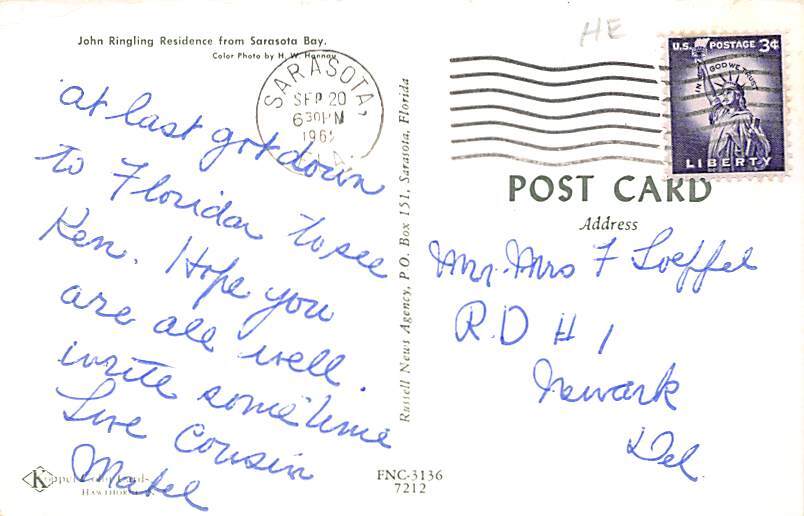 John Ringling Residence from Sarasota Bay.
Color Photo by H. W. Hannau
HE
SARASOTA,
SEP 20
630PM
196
FLA.
U.S. POSTAGE 3¢
IN GOD WE TRUST
LIBERTY
At last got down
to Florida to see
Ken. Hope you
are all well.
write sometime
Love Cousin
Mabel
Russell News Agency, P.O. Box 151, Sarasota, Florida
POST CARD
Address
Mr. Mrs F Loeffel
R.D # 1
Newark
Del.
FNC-3136
7212